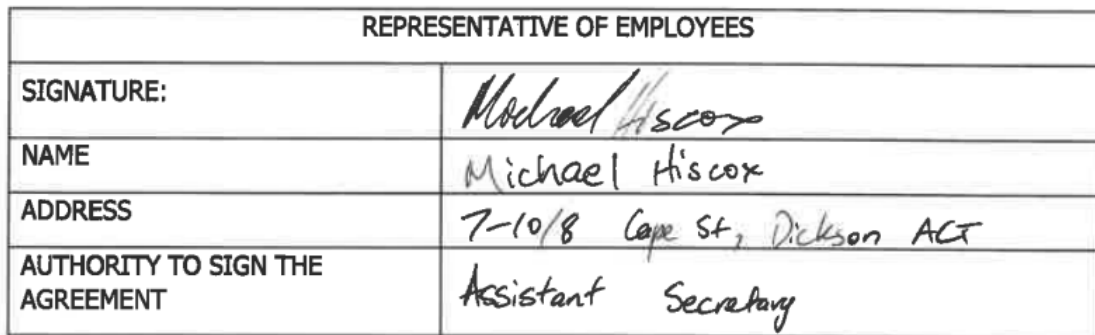 REPRESENTATIVE OF EMPLOYEES
SIGNATURE: Michael Hiscox
NAME Michael Hiscox
ADDRESS 7-10/8 Cape St, Dickson ACT
AUTHORITY TO SIGN THE
AGREEMENT Assistant Secretary